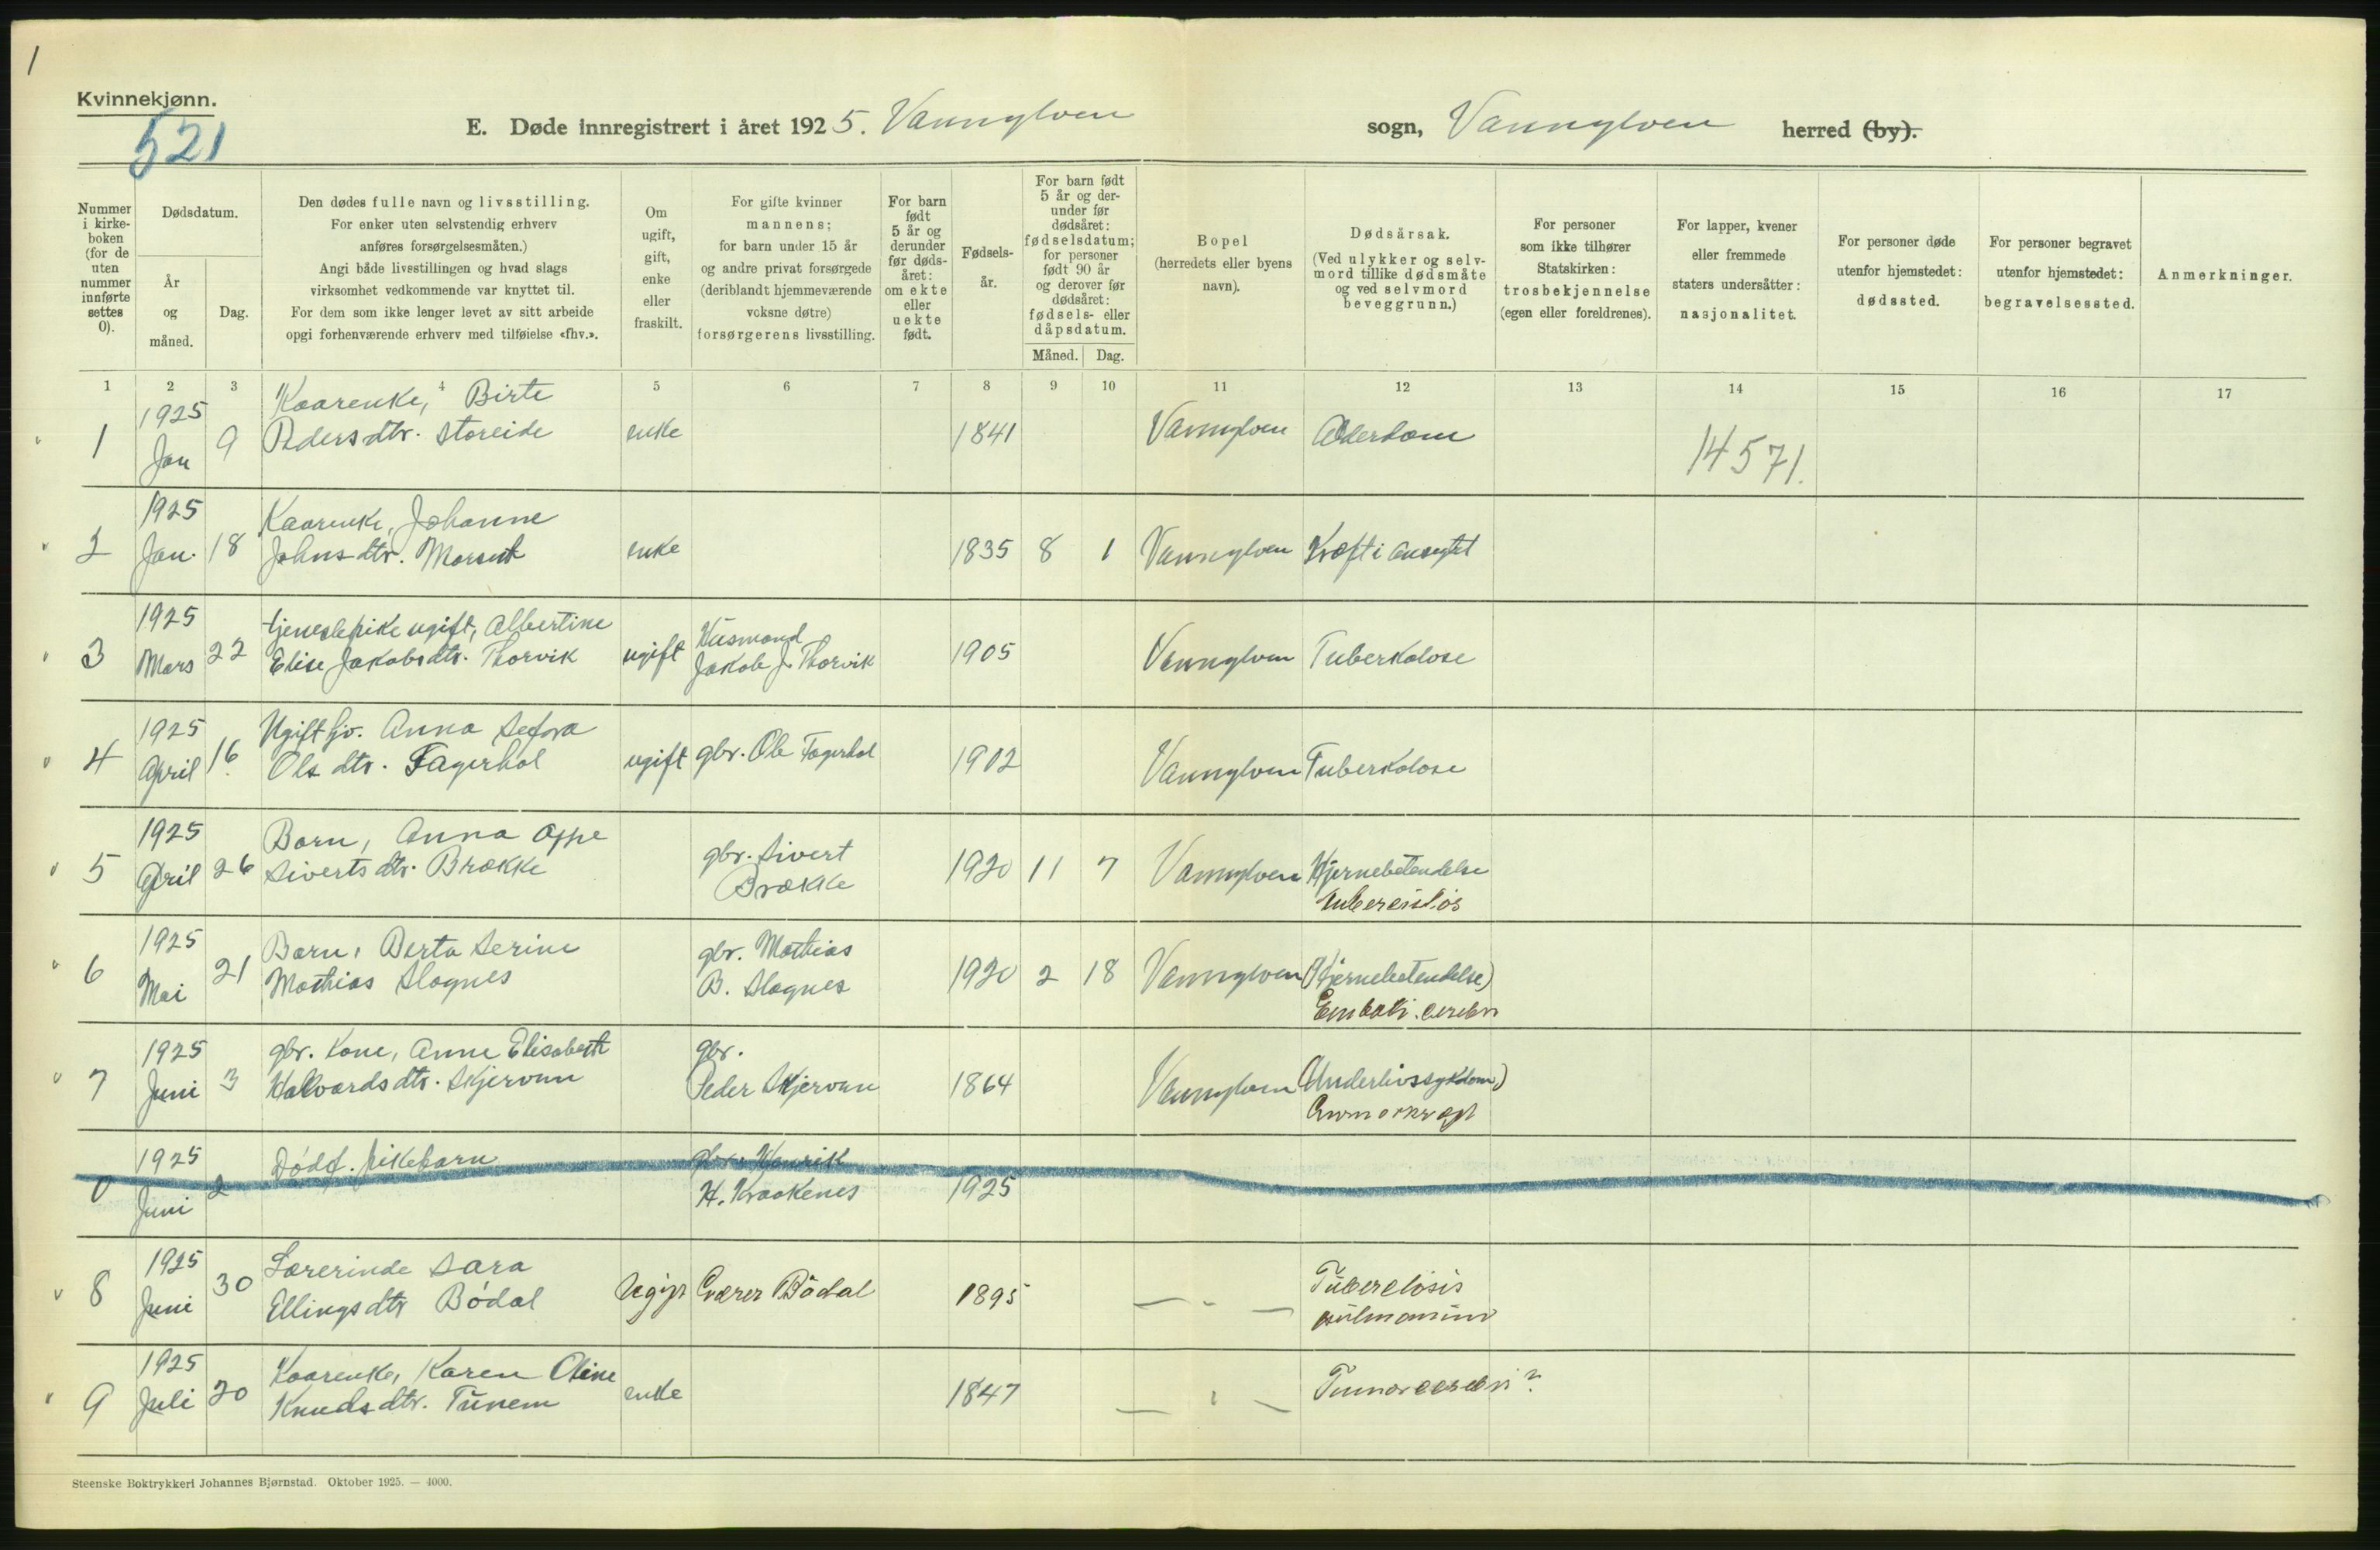 1
Kvinnekjønn.
521
E. Døde innregistrert i året 1925. Vannylven sogn, Vannylven herred (by).
Nummer i kirkeboken (for de uten nummer innførte settes 0).
Dødsdatum.
År og måned.
Dag.
Den dødes fulle navn og livsstilling.
For enker uten selvstendig erhverv
anføres forsørgelsesmåten.)
Angi både livsstillingen og hvad slags
virksomhet vedkommende var knyttet til.
For dem som ikke lenger levet av sitt arbeide
opgi forhenværende erhverv med tilføielse «fhv.».
Om ugift, gift, enke eller fraskilt.
For gifte kvinner
mannens;
for barn under 15 år
og andre privat forsørgede
(deriblandt hjemmeværende
voksne døtre)
forsørgerens livsstilling.
For barn født 5 år og derunder før dødsåret: om ekte eller uekte født.
Fødselsår.
For barn født 5 år og derunder før dødsåret: fødselsdatum; for personer født 90 år og derover før dødsåret: fødsels- eller dåpsdatum.
Måned. Dag.
Bopel
(herredets eller byens
navn).
Dødsårsak.
(Ved ulykker og selvmord tillike dødsmåte og ved selvmord beveggrunn.)
For personer
som ikke tilhører
Statskirken:
trosbekjennelse
(egen eller foreldrenes).
For lapper, kvener
eller fremmede
staters undersåtter:
nasjonalitet.
For personer døde
utenfor hjemstedet:
dødssted.
For personer begravet
utenfor hjemstedet:
begravelsessted.
Anmerkninger.
1 2 3 4 5 6 7 8 9 10 11 12 13 14 15 16 17
1925 Kaarenke, Birte
1 Jan 9 Pedersdtr. Storeide enke 1841 Vannylven Alderdom 14571.
1925 Kaarenke, Johanne
2 Jan. 18 Johnsdtr. enke 1835 8 1 Vannylven Kræft i ansigtet
1925 tjenestepike ugift, Albertine Husmand
3 Mars 22 Elise Jakobsdtr. Thorvik ugift Jakob J. Thorvik 1905 Vannylven Tuberkolose
1925 Ugift Anna Sefora
4 April 16 Ols dtr. Fagerhol ugift gbr. Ole Fagerhol 1902 Vannylven Tuberkolose
1925 Barn, Anna gbr. Sivert
5 April 26 Siverts dtr. Brække Brække 1920 11 7 Vannylven Hjernebetendelse
1925 Barn, Berta Serine gbr. Mathias
6 Mai 21 Mathias Slagnes B. Slagnes 1920 2 18 Vannylven (Hjernebetendelse)
Emboli. cerebri
1925 gbr. Kone, Anne Elisabeth gbr.
7 Juni 3 Halvardsdtr. Skjervun Peder Skjervun 1864 Vannylven (Underlivssykdom)
1925 Dødf. pikebarn gbr. Henrik
0 Juni 2 H. Kraakenes 1925
1925 Lærerinde Sara Tuberclosis
8 Juni 30 Ellingsdtr Bødal Ugift Bødal 1895 — " — pulmonum
1925 Kaarenke, Karen Oline
9 Juli 20 Knudsdtr. Tunem enke 1847 — " — Tumor cerebri?
Steenske Boktrykkeri Johannes Bjørnstad. Oktober 1925. — 4000.